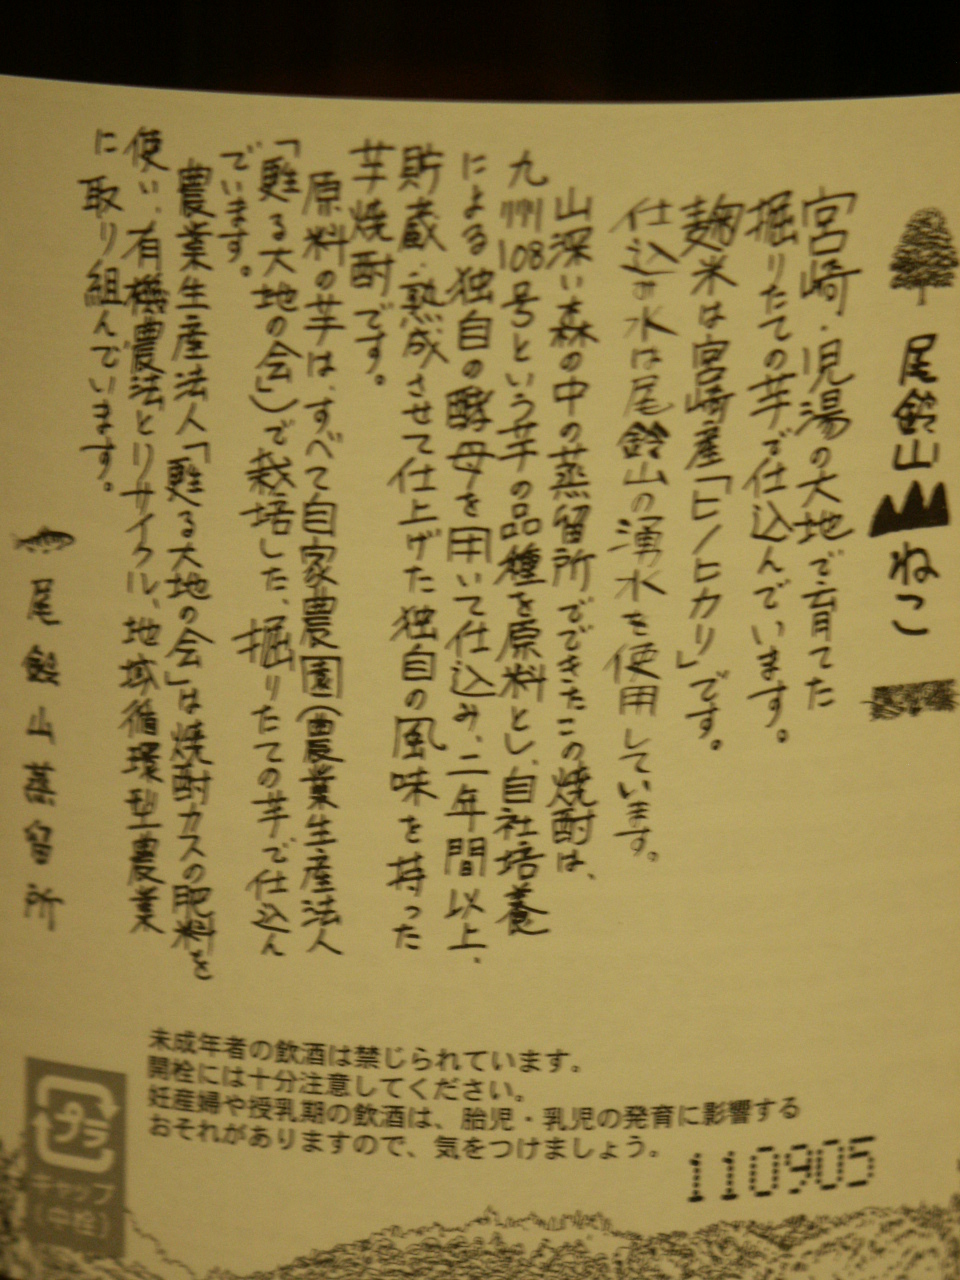 尾鈴山ねこ
宮崎・児湯の大地で育てた
掘りたての芋で仕込んでいます。
麹米は宮崎産「ヒノヒカリ」です。
仕込み水は尾鈴山の湧水を使用しています。
山深い森の中の蒸留所でできたこの焼酎は、
九州108号という芋の品種を原料とし、自社培養
による独自の酵母を用いて仕込み、二年間以上、
貯蔵・熟成させて仕上げた独自の風味を持った
芋焼酎です。
原料の芋は、すべて自家農園(農業生産法人
「甦る大地の会」)で栽培した、掘りたての芋で仕込ん
でいます。
農業生産法人「甦る大地の会」は焼酎カスの肥料を
使い、有機農法とリサイクル、地域循環型農業
に取り組んでいます。
尾鈴山蒸留所
未成年者の飲酒は禁じられています。
開栓には十分注意してください。
妊産婦や授乳期の飲酒は、胎児・乳児の発育に影響する
おそれがありますので、気をつけましょう。
110905
プラ
キャップ
(中栓)